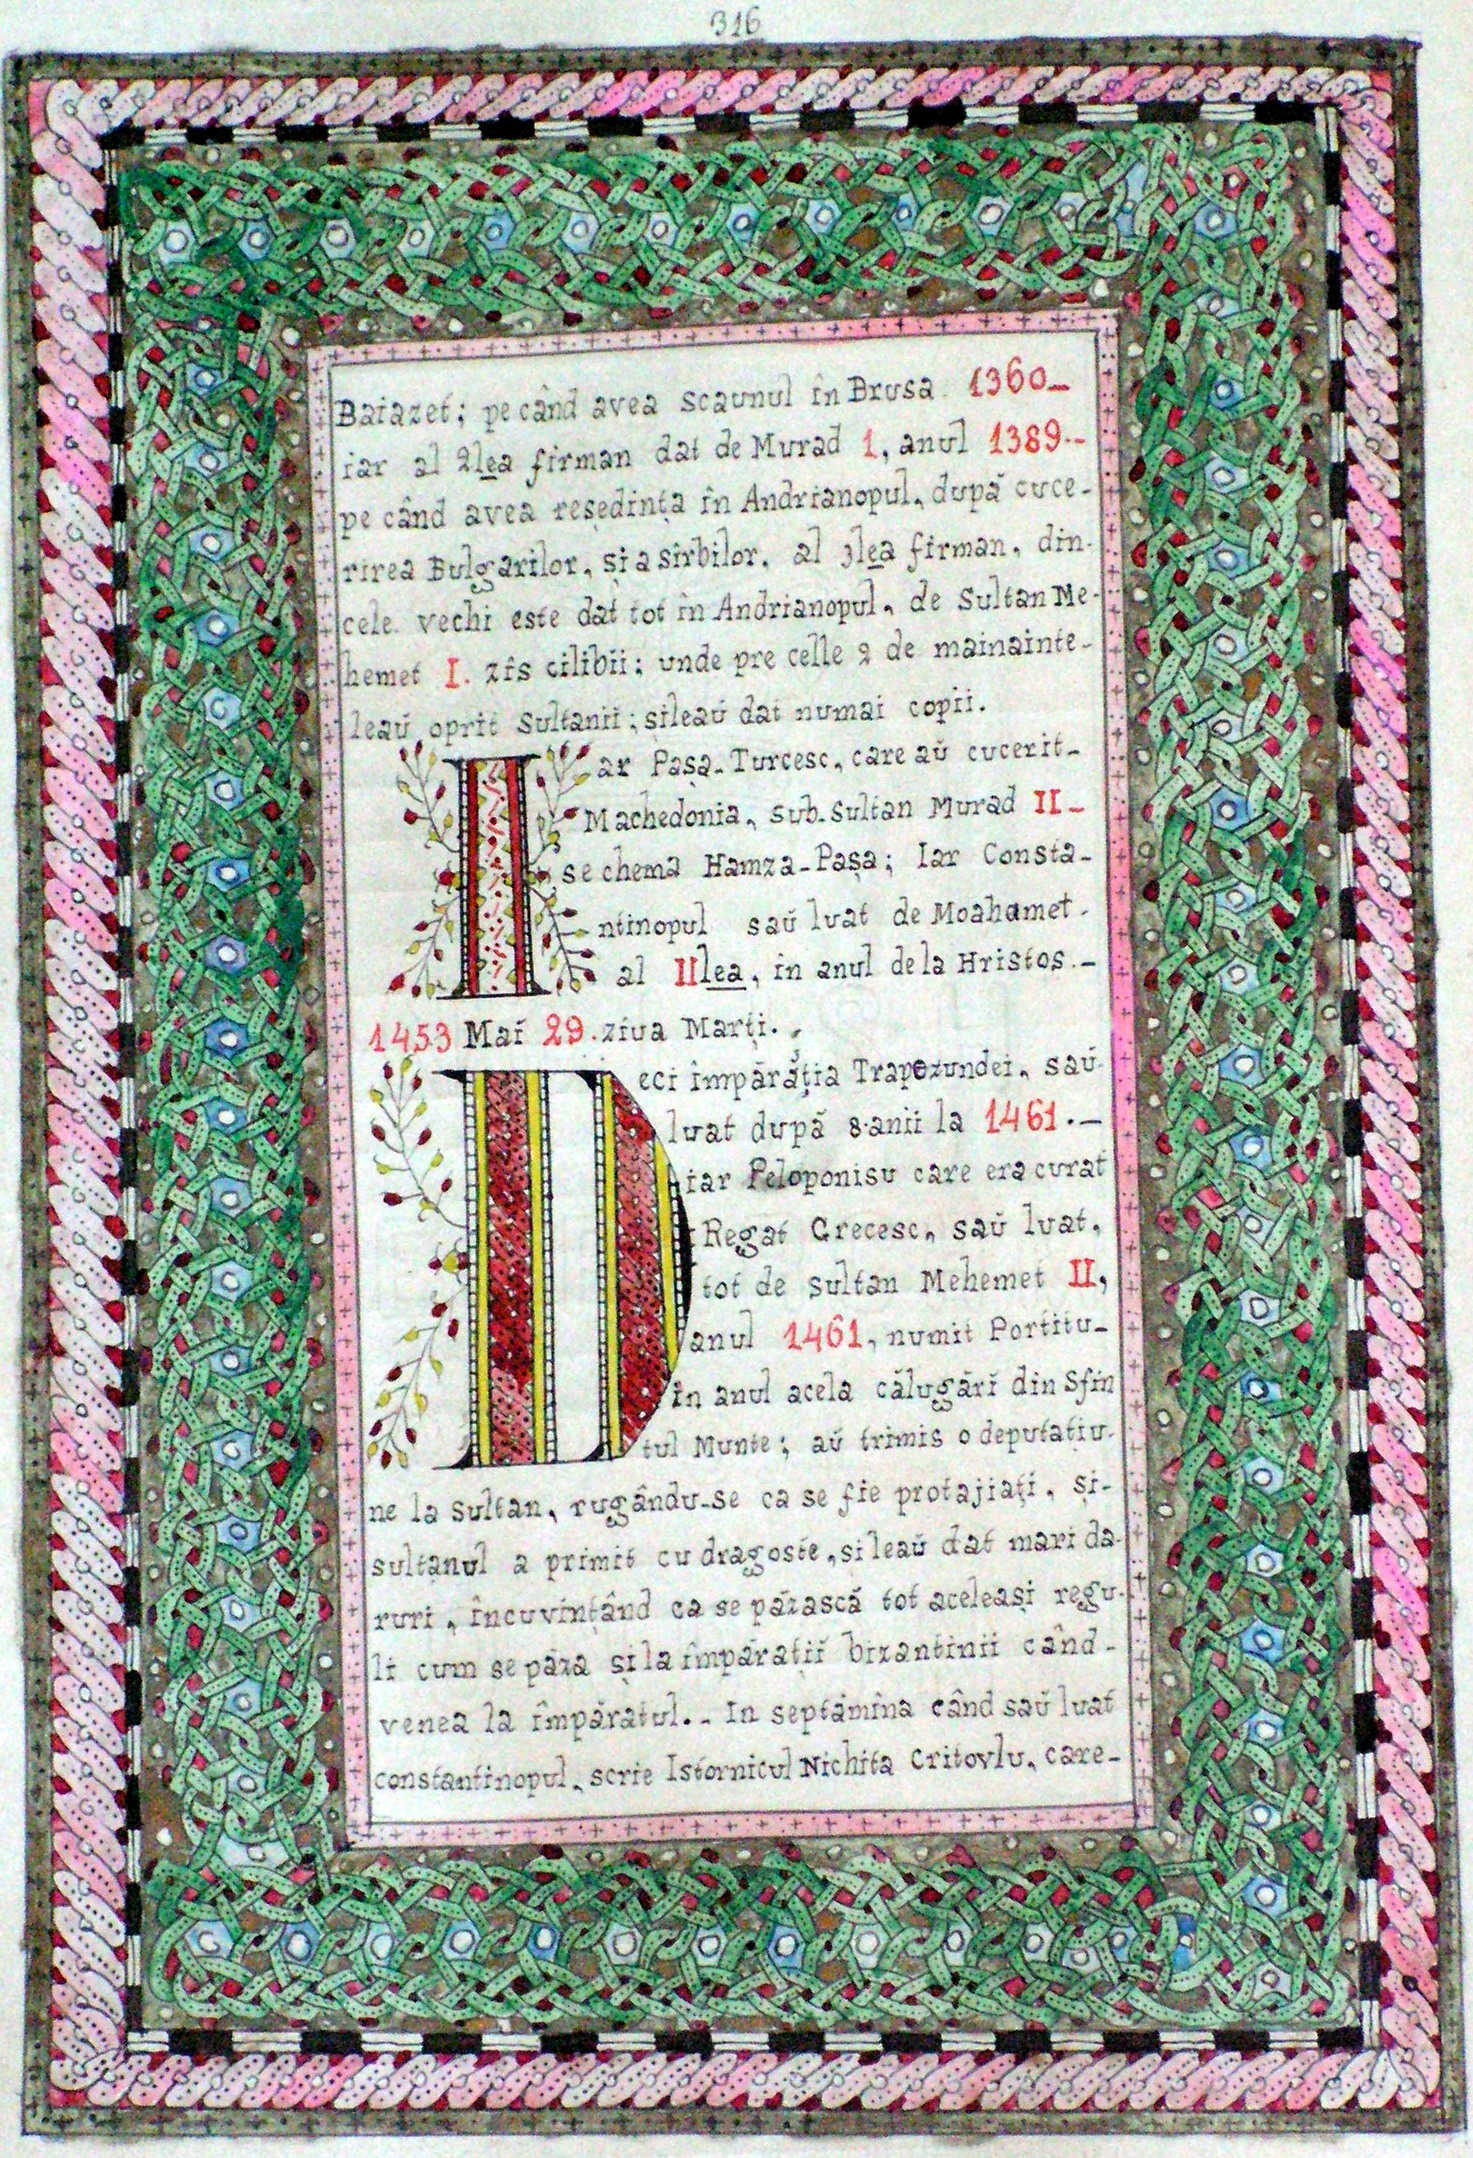 316
Baiazet; pe când avea scaunul în Brusa. 1360_
iar al 2lea firman dat de Murad 1, anul 1389.-
pe când avea reședința în Andrianopul, după cuce-
rirea Bulgarilor, și a sirbilor, al 3lea firman, din-
cele vechi este dat tot în Andrianopul, de Sultan Me-
hemet I. zîs cilibii; unde pre celle 2 de mainainte-
leaŭ oprit Sultanii; sileaŭ dat numai copii.
Iar Pașa-Turcesc, care aŭ cucerit-
Machedonia, sub-sultan Murad II-
se chema Hamza-Pașa; Iar Consta-
ntinopul saŭ luat de Moahamet-
al IIlea, in anul dela Hristos.-
1453 Maĭ 29. ziua Marți.
Deci împărăția Trapezundei, saŭ
luat după 8·anii la 1461.-
iar Peloponisu care era curat
Regat Grecesc, saŭ luat,
tot de Sultan Mehemet II,
anul 1461, numit Portitu-
în anul acela călugări din Sfin
tul Munte; aŭ trimis o deputatiu-
ne la Sultan, rugându-se ca se fie protajiați, și-
sultanul a primit cu dragoste, si leaŭ dat mari da-
ruri, încuvințând ca se păzască tot aceleași regu-
li cum se păza și la împărații bizantinii când-
venea la împăratul.- In septămîna când saŭ luat
constantinopul, scrie Istornicul Nichita Critovlu, care-